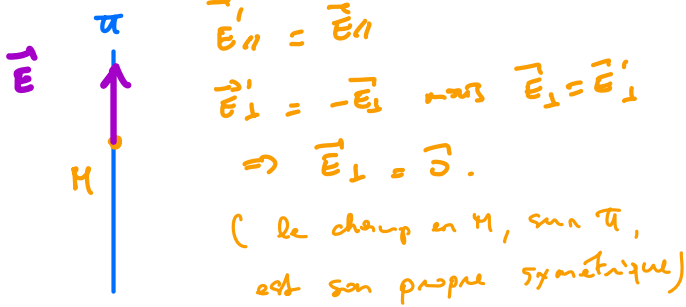 π
E⃗
M
E⃗'∥ = E⃗∥
E⃗'⊥ = -E⃗⊥ mais E⃗⊥ = E⃗'⊥
=> E⃗⊥ = 0⃗.
( le champ en M, sur π,
est son propre symétrique)